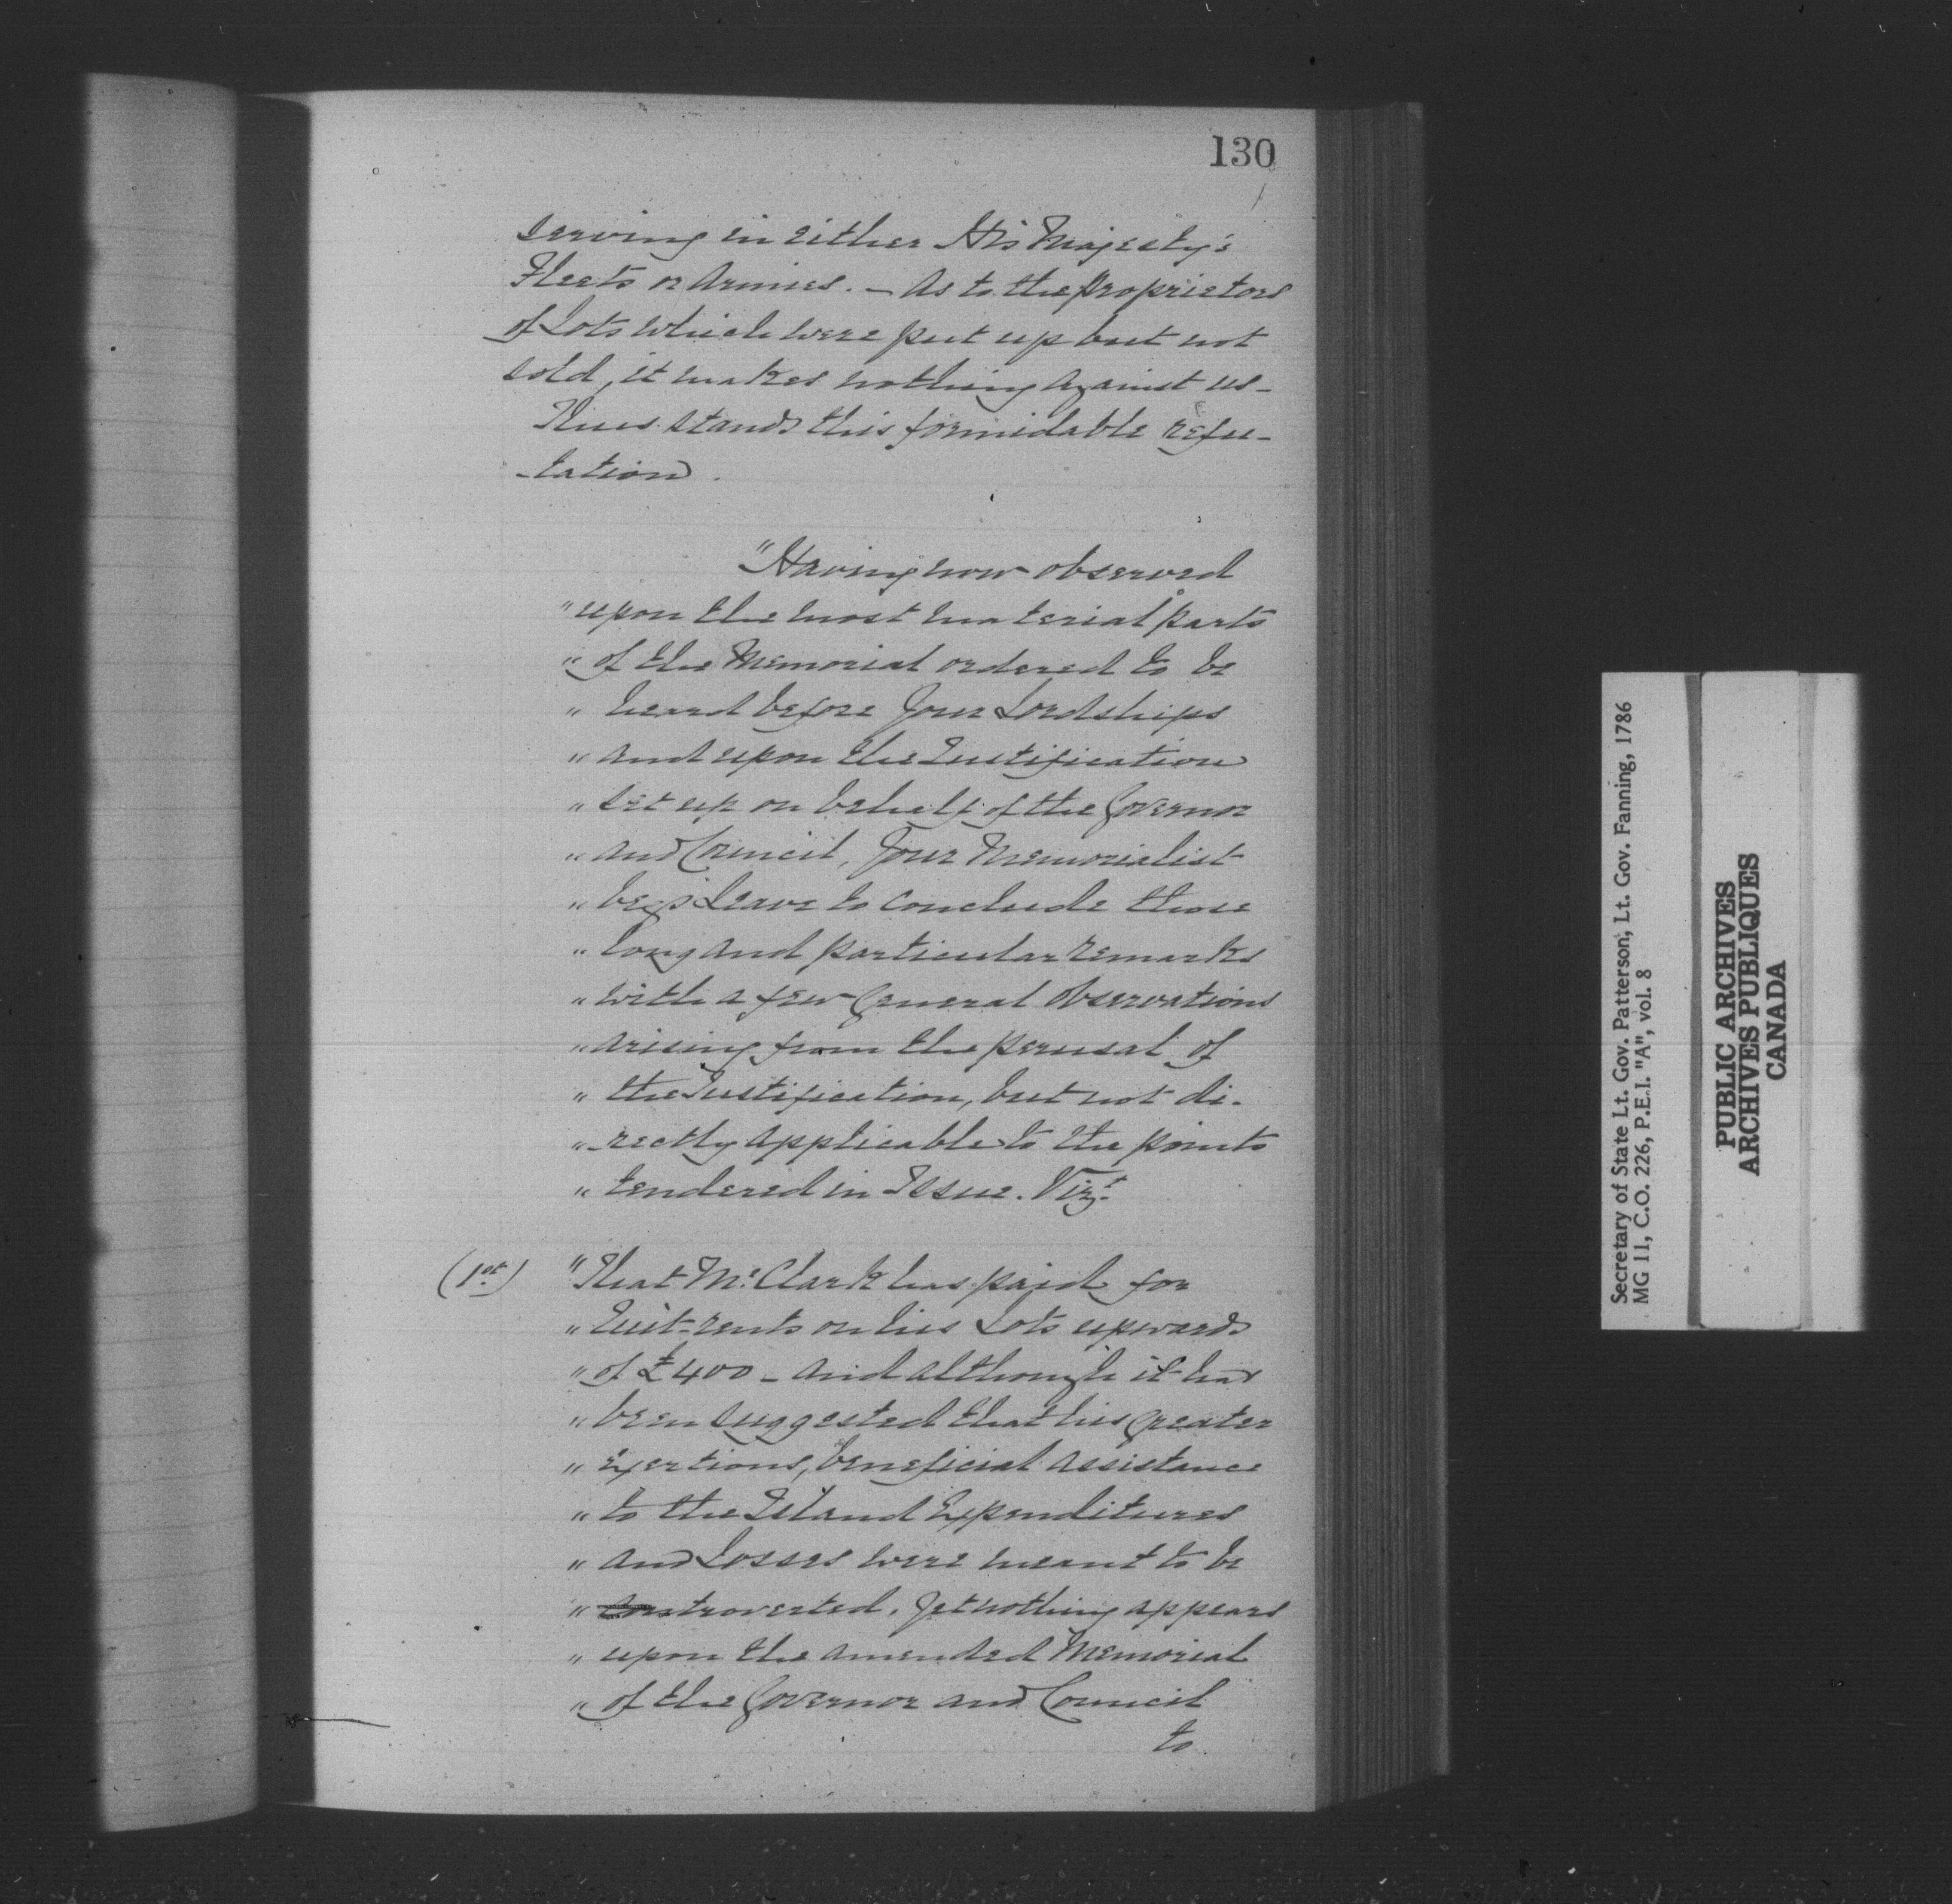 130
serving in either His Majesty's
Fleets or Armies. – As to the proprietors
of Lots which were put up but not
sold, it makes nothing against us –
Thus stands this formidable refu-
-tation.
"Having now observed
" upon the most material parts
" of the Memorial ordered to be
" heard before Your Lordships
" and upon the Justification
" set up on behalf of the Governor
" and Council, Your Memorialist
" begs Leave to conclude those
" long and particular remarks
" with a few General Observations
" arising from the perusal of
" the Justification, but not di-
" -rectly applicable to the points
" tendered in Issue. Vizt.
(1st) "That Mr. Clark has paid for
" Quit-rents on his Lots upwards
" of £400 – and although it has
" been suggested that his Greater
" Exertions, beneficial assistance
" to the Island Expenditures
" and Losses were meant to be
" controverted. Yet nothing appears
" upon the amended Memorial
" of the Governor and Council
to
Secretary of State Lt. Gov. Patterson; Lt. Gov. Fanning, 1786
MG 11, C.O. 226, P.E.I. "A", vol. 8
PUBLIC ARCHIVES
ARCHIVES PUBLIQUES
CANADA